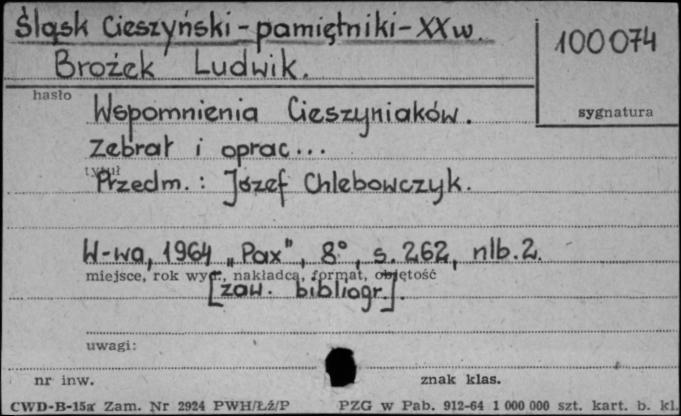 Śląsk Cieszyński - pamiętniki - XX w.
100 074
Brożek Ludwik.
hasło
sygnatura
Wspomnienia Cieszyniaków.
Zebrał i oprac...
tytuł
Przedm.: Józef Chlebowczyk.
W-wa, 1964 „Pax", 8°, s. 262, nlb. 2.
miejsce, rok wyd., nakładca, format, objętość
[zaw. bibliogr.].
uwagi:
nr inw.
znak klas.
CWD-B-15a Zam. Nr 2924 PWH/Łź/P PZG w Pab. 912-64 1 000 000 szt. kart. b. kl.